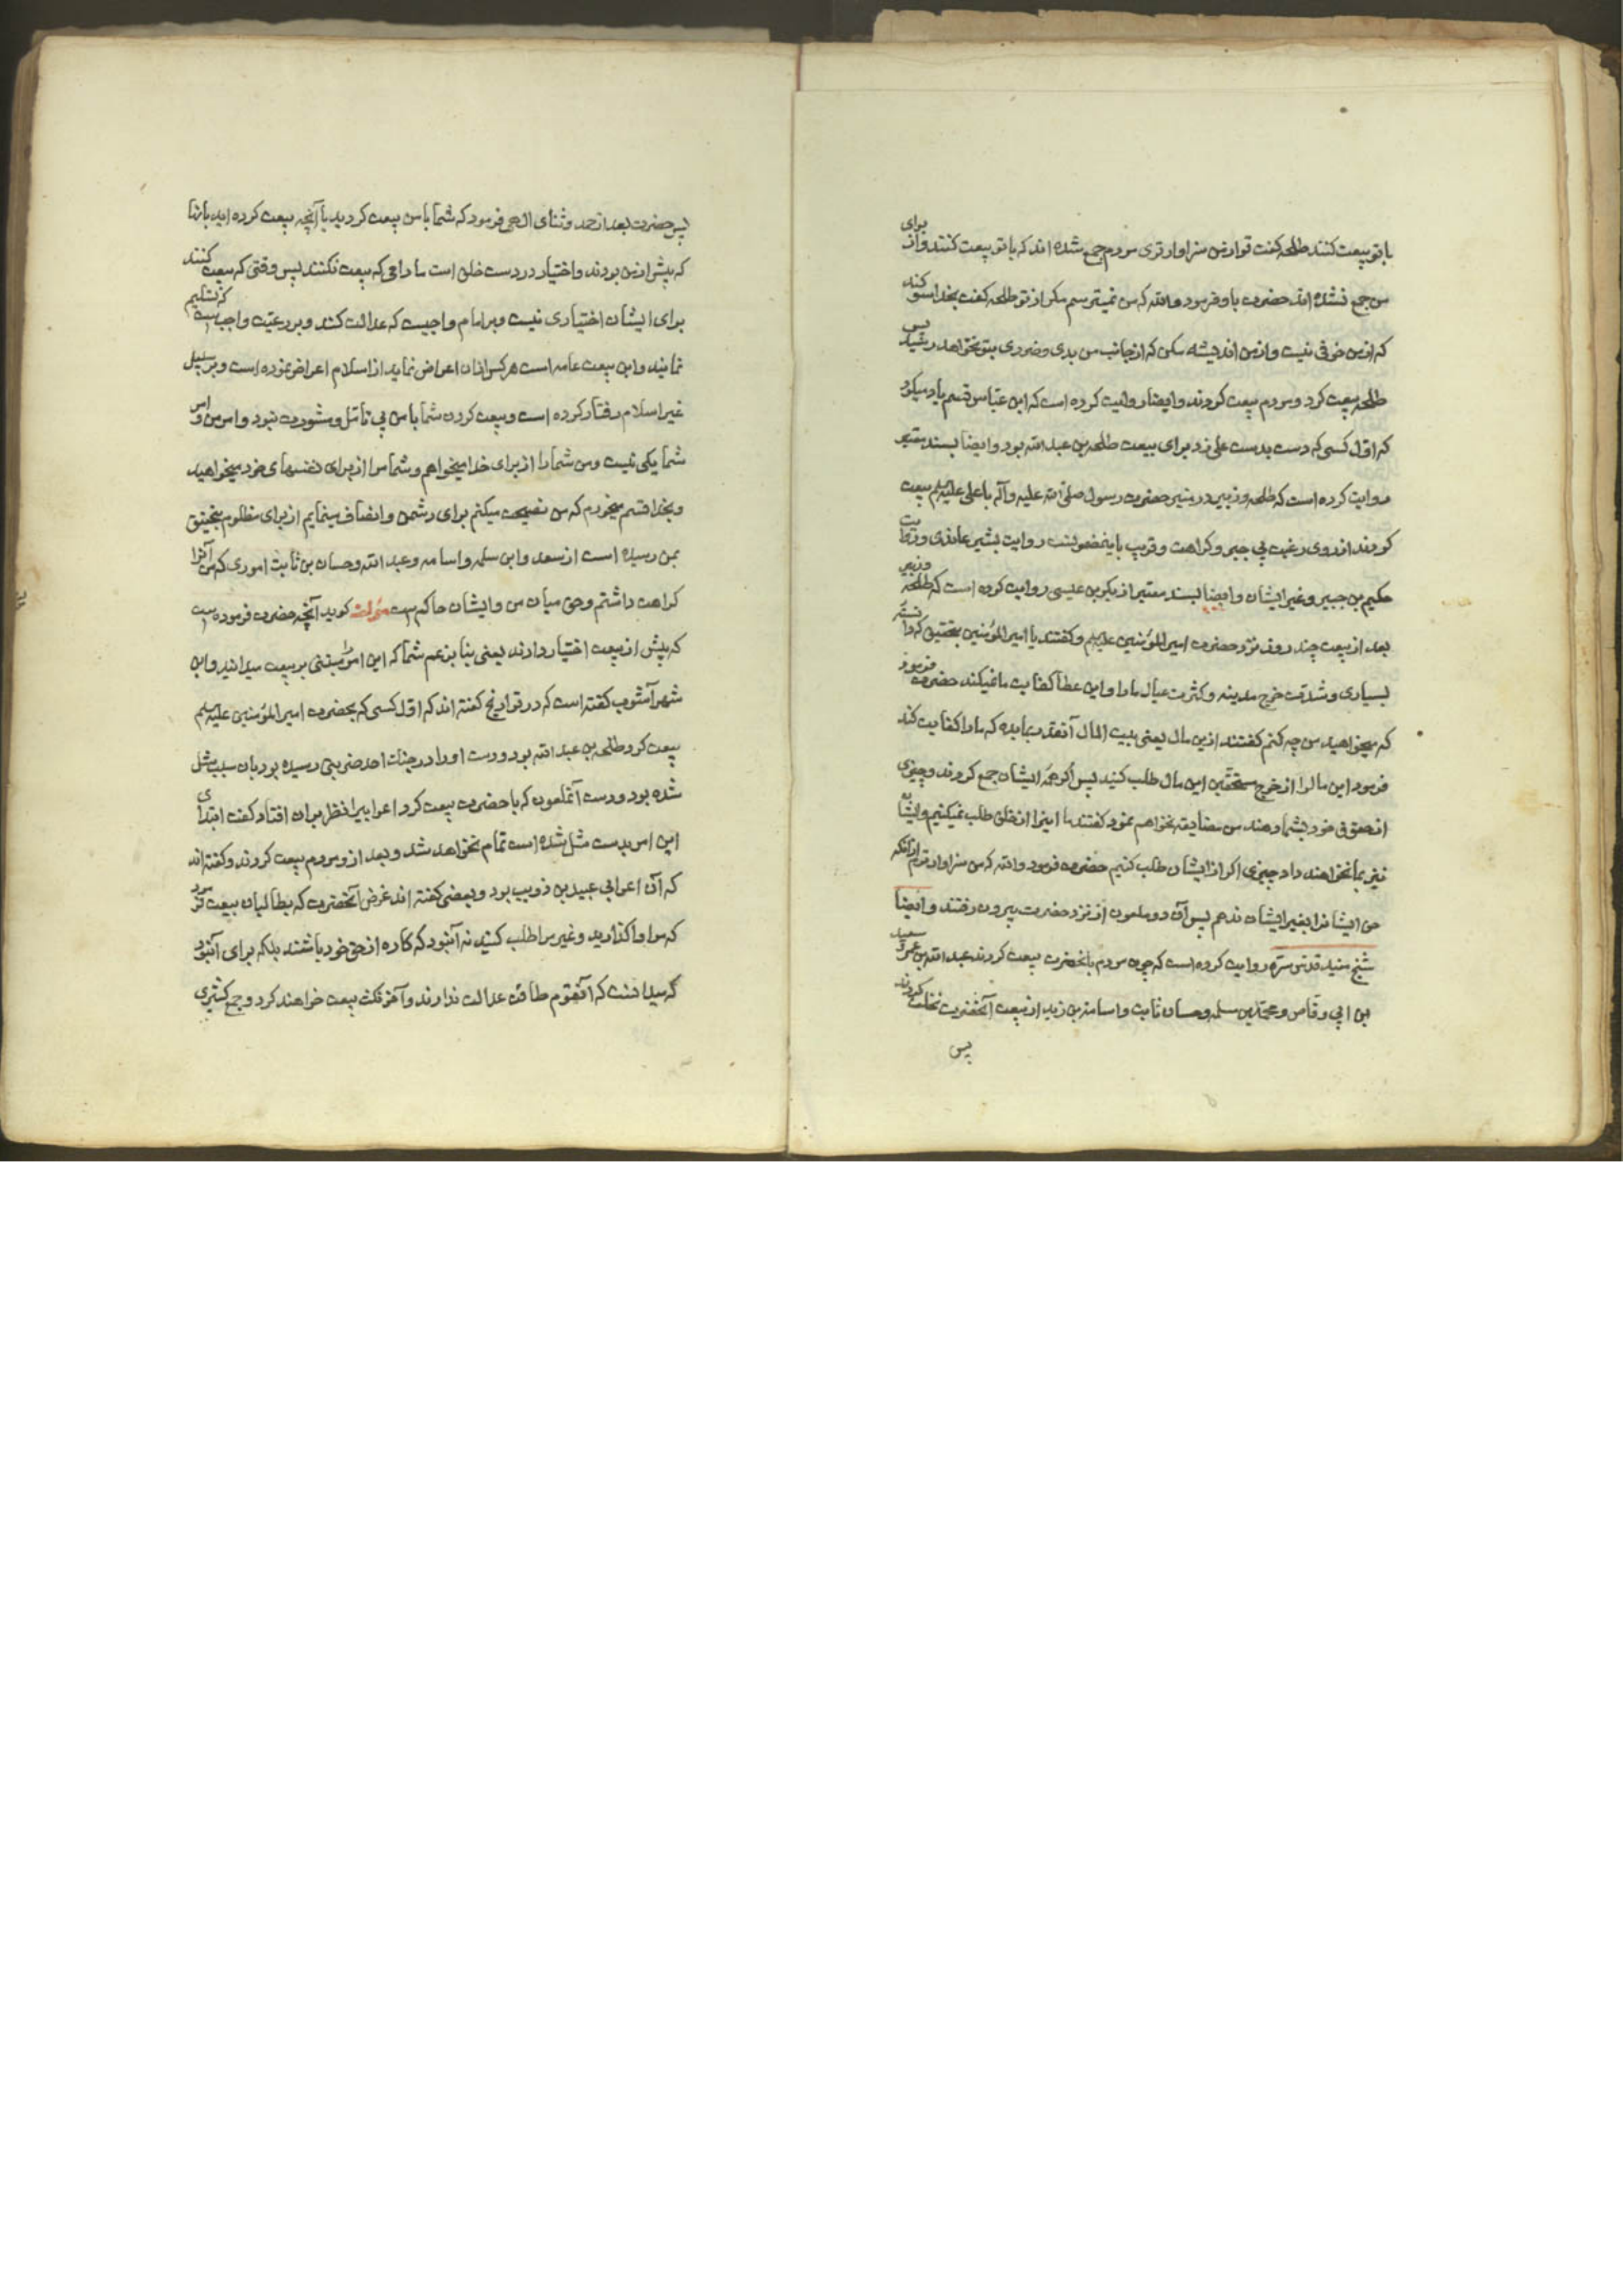 با تو بیعت کنند طلحه کفت تو ازمن سزاوارتری مردم جمع شده اند که با تو بیعت کنند و از برای
من جمع نشده اند حضرت باو فرمود والله که من نمیترسم مکر از تو طلحه کفت بخدا سوکند
که ازمن خوفی نیست و ازمن اندیشه مکن که از جانب من بدی و ضرری بتو نخواهد رسید پس
طلحه بیعت کرد و مردم بیعت کردند و ایضا روایت کرده است که ابن عباس قسم یاد میکرد
که اوّل کسی که دست بدست علی زد برای بیعت طلحه بن عبدالله بود و ایضا بسند معتبر
روایت کرده است که طلحه و زبیر در منبر حضرت رسول صلی الله علیه وآله با علی علیه السلم بیعت
کردند از روی رغبت بی جبر و کراهت و قریب باینمضمونست روایت بشیر عابدی و روایت
حکیم بن جبیر و غیر ایشان و ایضا بسند معتبر از بکر بن عیسی روایت کرده است که طلحه و زبیر
بعد از بیعت چند روز نزد حضرت امیر المؤمنین علیه السلم و کفتند یا امیر المؤمنین بتحقیق که دانسته
بسیاری و شدت خرج مدینه و کثرت عیال مارا و این عطا کفایت ما نمیکند حضرت فرمود
که میخواهید من چه کنم کفتند ازین مال یعنی بیت المال آنقدر بما بده که مارا کفایت کند
فرمود این مالرا از خرج مستحقّین این مال طلب کنید پس اکر همه ایشان جمع کردند و چیزی
از حقوق خود بشما دهند من مضایقه نخواهم نمود کفتند ما اینرا از خلق طلب نمیکنیم و ایشان
نیز بما نخواهند داد چیزی اکر از ایشان طلب کنیم حضرت فرمود والله که من سزاوارترم از آنکه
حق ایشانرا بغیر ایشان ندهم پس آن دو ملعون از نزد حضرت بیرون رفتند و ایضا
شیخ مفید قدس سره روایت کرده است که چون مردم بانحضرت بیعت کردند عبد الله بن عمر و سعید
بن ابی وقاص و محمّد بن مسلمه و حسان ثابت و اسامة بن زید از بیعت آنحضرت تخلف کردند
پس
پس حضرت بعد از حمد و ثنای الهی فرمود که شما با من بیعت کردید با آنچه بیعت کرده اید با آنها
که پیش ازمن بودند و اختیار در دست خلق است مادامی که بیعت نکنند پس وقتی که بیعت کنند
برای ایشان اختیاری نیست و بر امام واجبست که عدالت کند و بر رعیّت واجبست که تسلیم
نمایند و این بیعت عامه است هر کس از ان اعراض نماید از اسلام اعراض نموده است و بر سبیل
غیر اسلام رفتار کرده است و بیعت کردن شما با من بی تامّل و مشورت نبود و امر من و امر
شما یکی نیست و من شما را از برای خدا میخواهم و شما مرا از برای نفسهای خود میخواهید
و بخدا قسم میخورم که من نصیحت میکنم برای دشمن و انصاف مینمایم از برای مظلوم بتحقیق
بمن رسیده است از سعد و ابن سلمه و اسامه و عبد الله و حسان بن ثابت اموری که من آنرا
کراهت داشتم و حق میان من و ایشان حاکم است مؤلف کوید آنچه حضرت فرموده است
که پیش از بیعت اختیار دارند یعنی بنا بزعم شما که این امر را مبتنی بر بیعت میدانید و ابن
شهرآشوب کفته است که در تواریخ کفته اند که اوّل کسی که بحضرت امیر المؤمنین علیه السلم
بیعت کرد طلحه بن عبد الله بود و دست او را در جنک احد ضربتی رسیده بود بان سبب شل
شده بود و دست آنملعون که با حضرت بیعت کرد اعرابیرا نظر بران افتاد کفت ابتدای
این امر بدست شل شده است تمام نخواهد شد و بعد از و مردم بیعت کردند و کفته اند
که آن اعرابی عبید بن ذویب بود و بعضی کفته اند غرض آنحضرت که بطالبان بیعت فرمود
که مرا واکذارید و غیر مرا طلب کنید نه آنبود که کاره از حق خود باشند بلکه برای آنبود
که میدانست که آنقوم طاقت عدالت ندارند و آخر نکث بیعت خواهند کرد و جمع کثیری